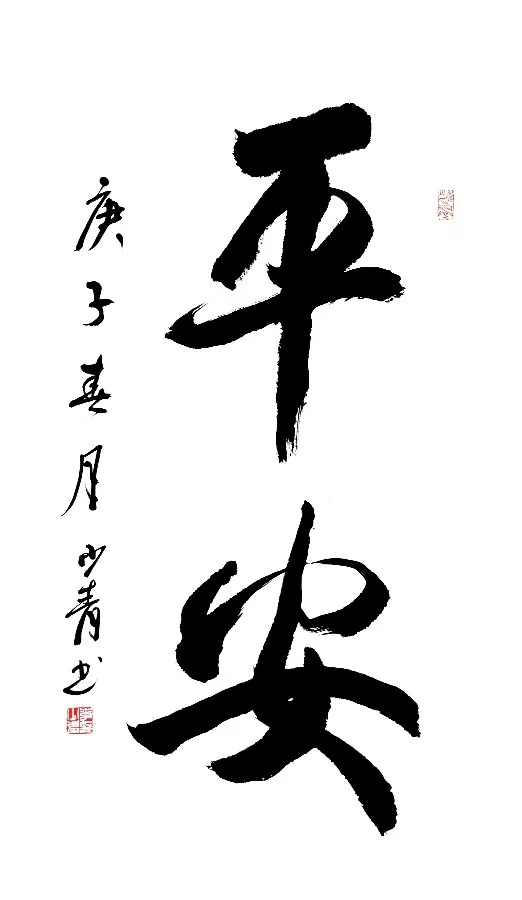 平安
庚子春月少青书